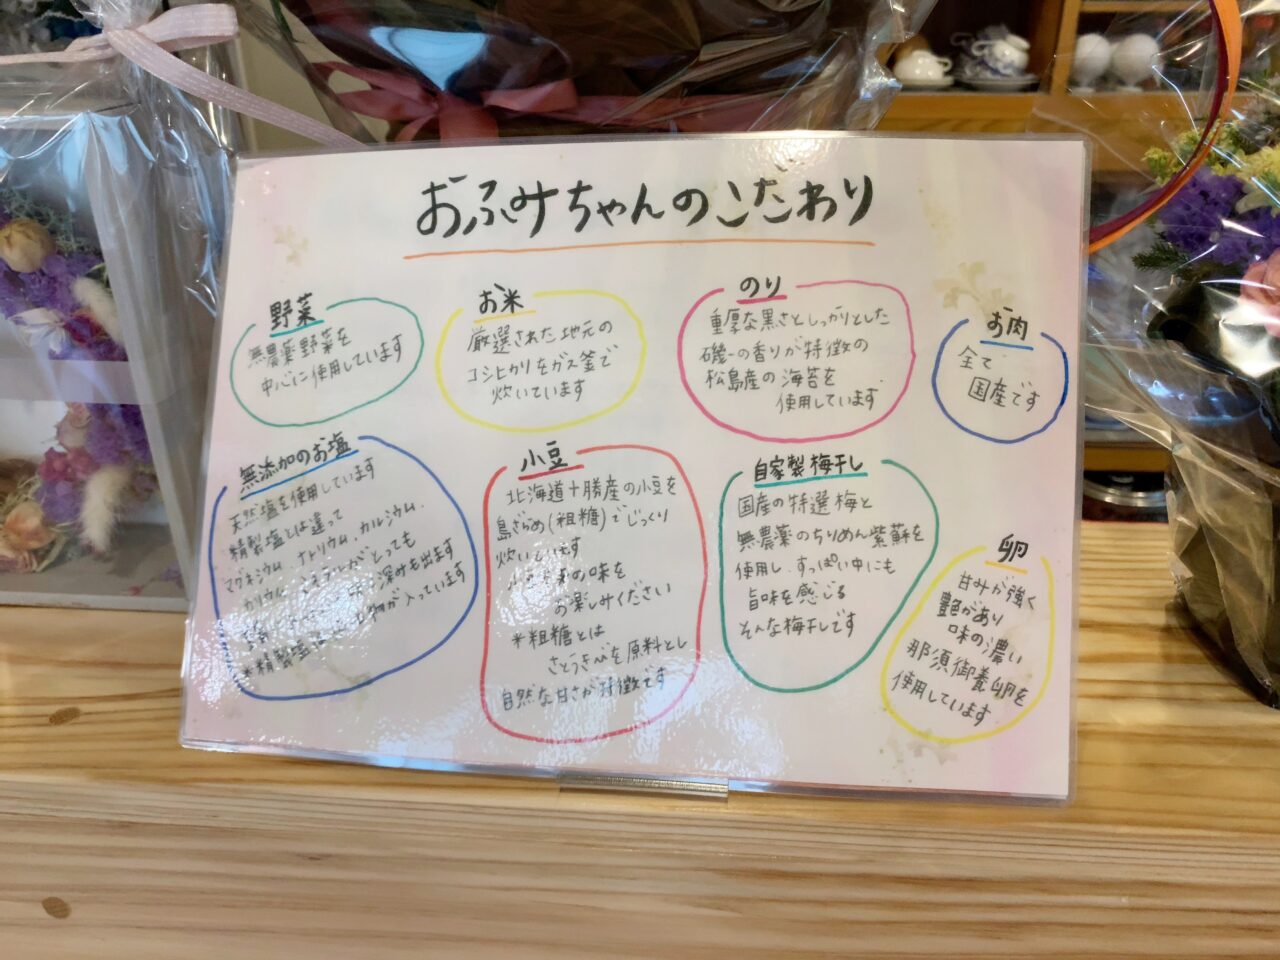 おふみちゃんのこだわり
野菜
無農薬野菜を
中心に使用しています
お米
厳選された地元の
コシヒカリをガス釜で
炊いています
のり
重厚な黒さとしっかりとした
磯の香りが特徴の
松島産の海苔を
使用しています
お肉
全て
国産です
無添加のお塩
天然塩を使用しています
精製塩とは違って
マグネシウム、ナトリウム、カルシウム、
カリウム、ミネラルがとっても
深みも出ます
が入っています
*精製塩
小豆
北海道十勝産の小豆を
島ざらめ(粗糖)でじっくり
炊いています
の味を
お楽しみください
*粗糖とは
さとうきびを原料とし
自然な甘さが特徴です
自家製梅干し
国産の特選梅と
無農薬のちりめん紫蘇を
使用し、すっぱい中にも
旨味を感じる
そんな梅干しです
卵
甘みが強く
艶があり
味の濃い
那須御養卵を
使用しています